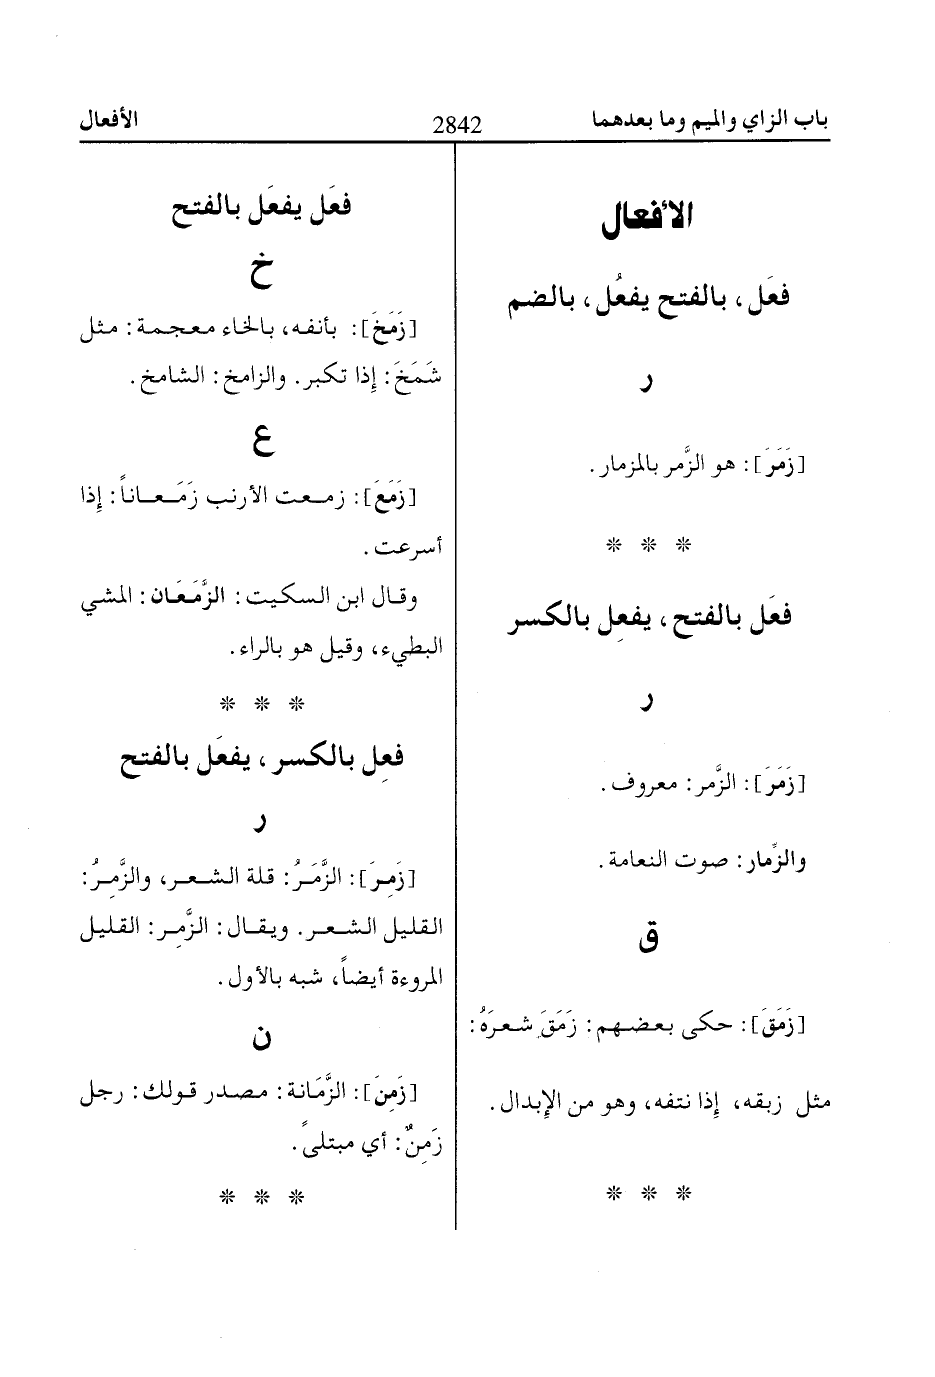 باب الزاي والميم وما بعدهما
2842
الأفعال
الأفعال
فعَل، بالفتح يفعُل، بالضم
ر
[زَمَرَ]: هو الزَّمر بالمزمار.
* * *
فعَل بالفتح، يفعِل بالكسر
ر
[زَمَرَ]: الزَّمر: معروف.
والزِّمار: صوت النعامة.
ق
[زَمَقَ]: حكى بعضهم: زَمَقَ شعرَهُ:
مثل زبقه، إذا نتفه، وهو من الإبدال.
* * *
فعَل يفعَل بالفتح
خ
[زَمَخَ]: بأنفه، بالخاء معجمة: مثل
شَمَخَ: إذا تكبر. والزامخ: الشامخ.
ع
[زَمَعَ]: زمعت الأرنب زَمَعاناً: إذا
أسرعت.
وقال ابن السكيت: الزَّمَعَان: المشي
البطيء، وقيل هو بالراء.
* * *
فعِل بالكسر، يفعَل بالفتح
ر
[زَمِرَ]: الزَّمَرُ: قلة الشعر، والزَّمِرُ:
القليل الشعر. ويقال: الزَّمِر: القليل
المروءة أيضاً، شبه بالأول.
ن
[زَمِنَ]: الزَّمَانة: مصدر قولك: رجل
زَمِنٌ: أي مبتلىً.
* * *